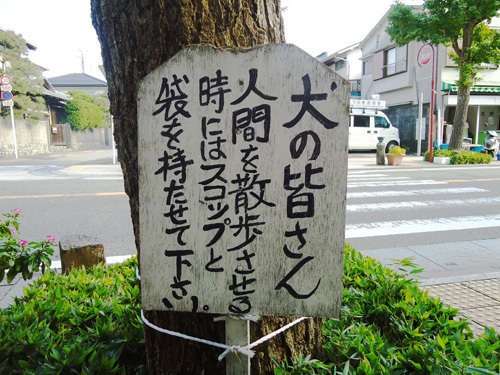 犬の皆さん
人間を散歩させる
時にはスコップと
袋を持たせて下さい。